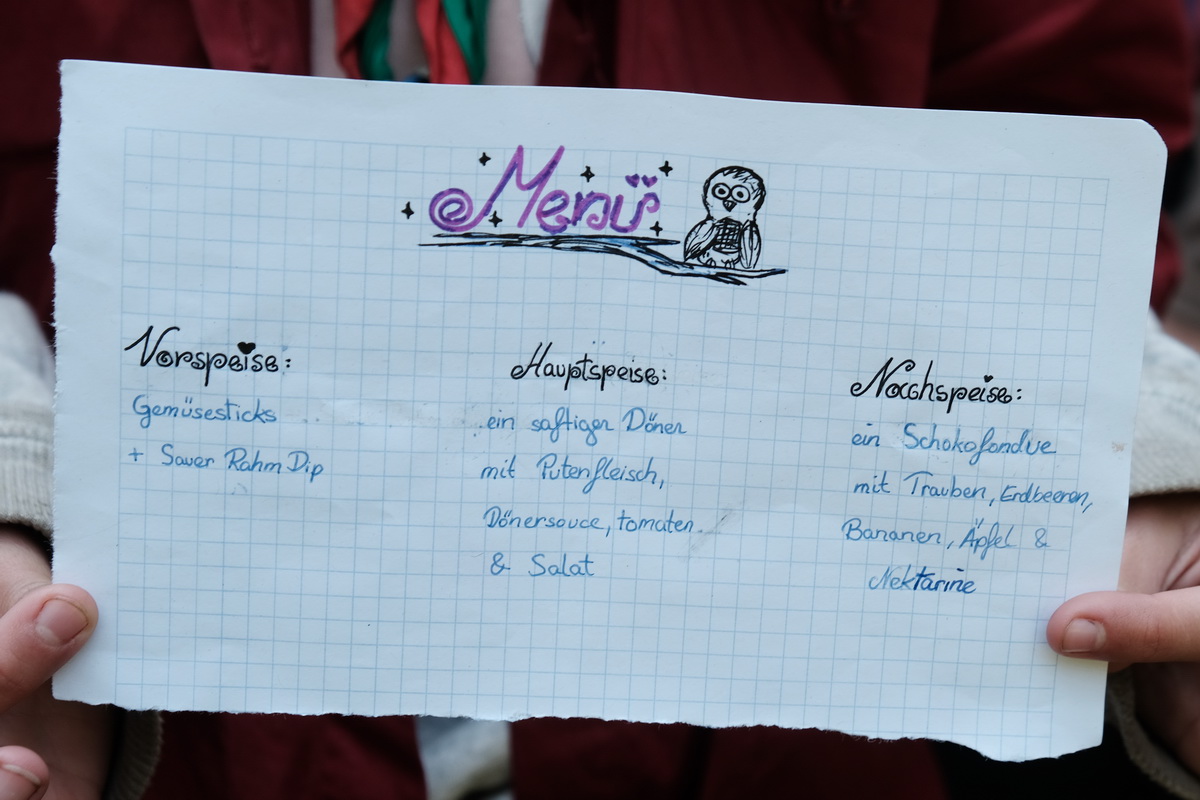 Menü
Vorspeise:
Gemüsesticks
+ Sauer Rahm Dip
Hauptspeise:
ein saftiger Döner
mit Putenfleisch,
Dönersouce, tomaten
& Salat
Nachspeise:
ein Schokofondue
mit Trauben, Erdbeeren,
Bananen, Äpfel &
Nektarine